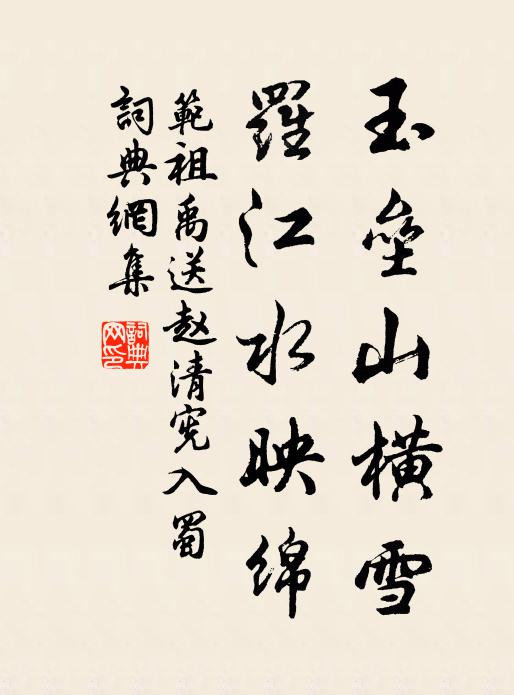 玉垒山横雪
羅江水映绵
範祖禹送赵清宪入蜀
詞典網集
詞典网印